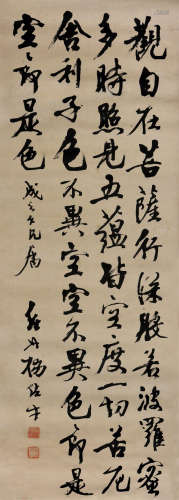 觀自在菩薩行深般若波羅蜜
多時照見五蘊皆空度一切苦厄
舍利子色不異空空不異色即是
空空即是色